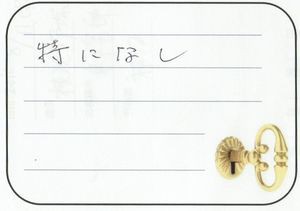 特になし